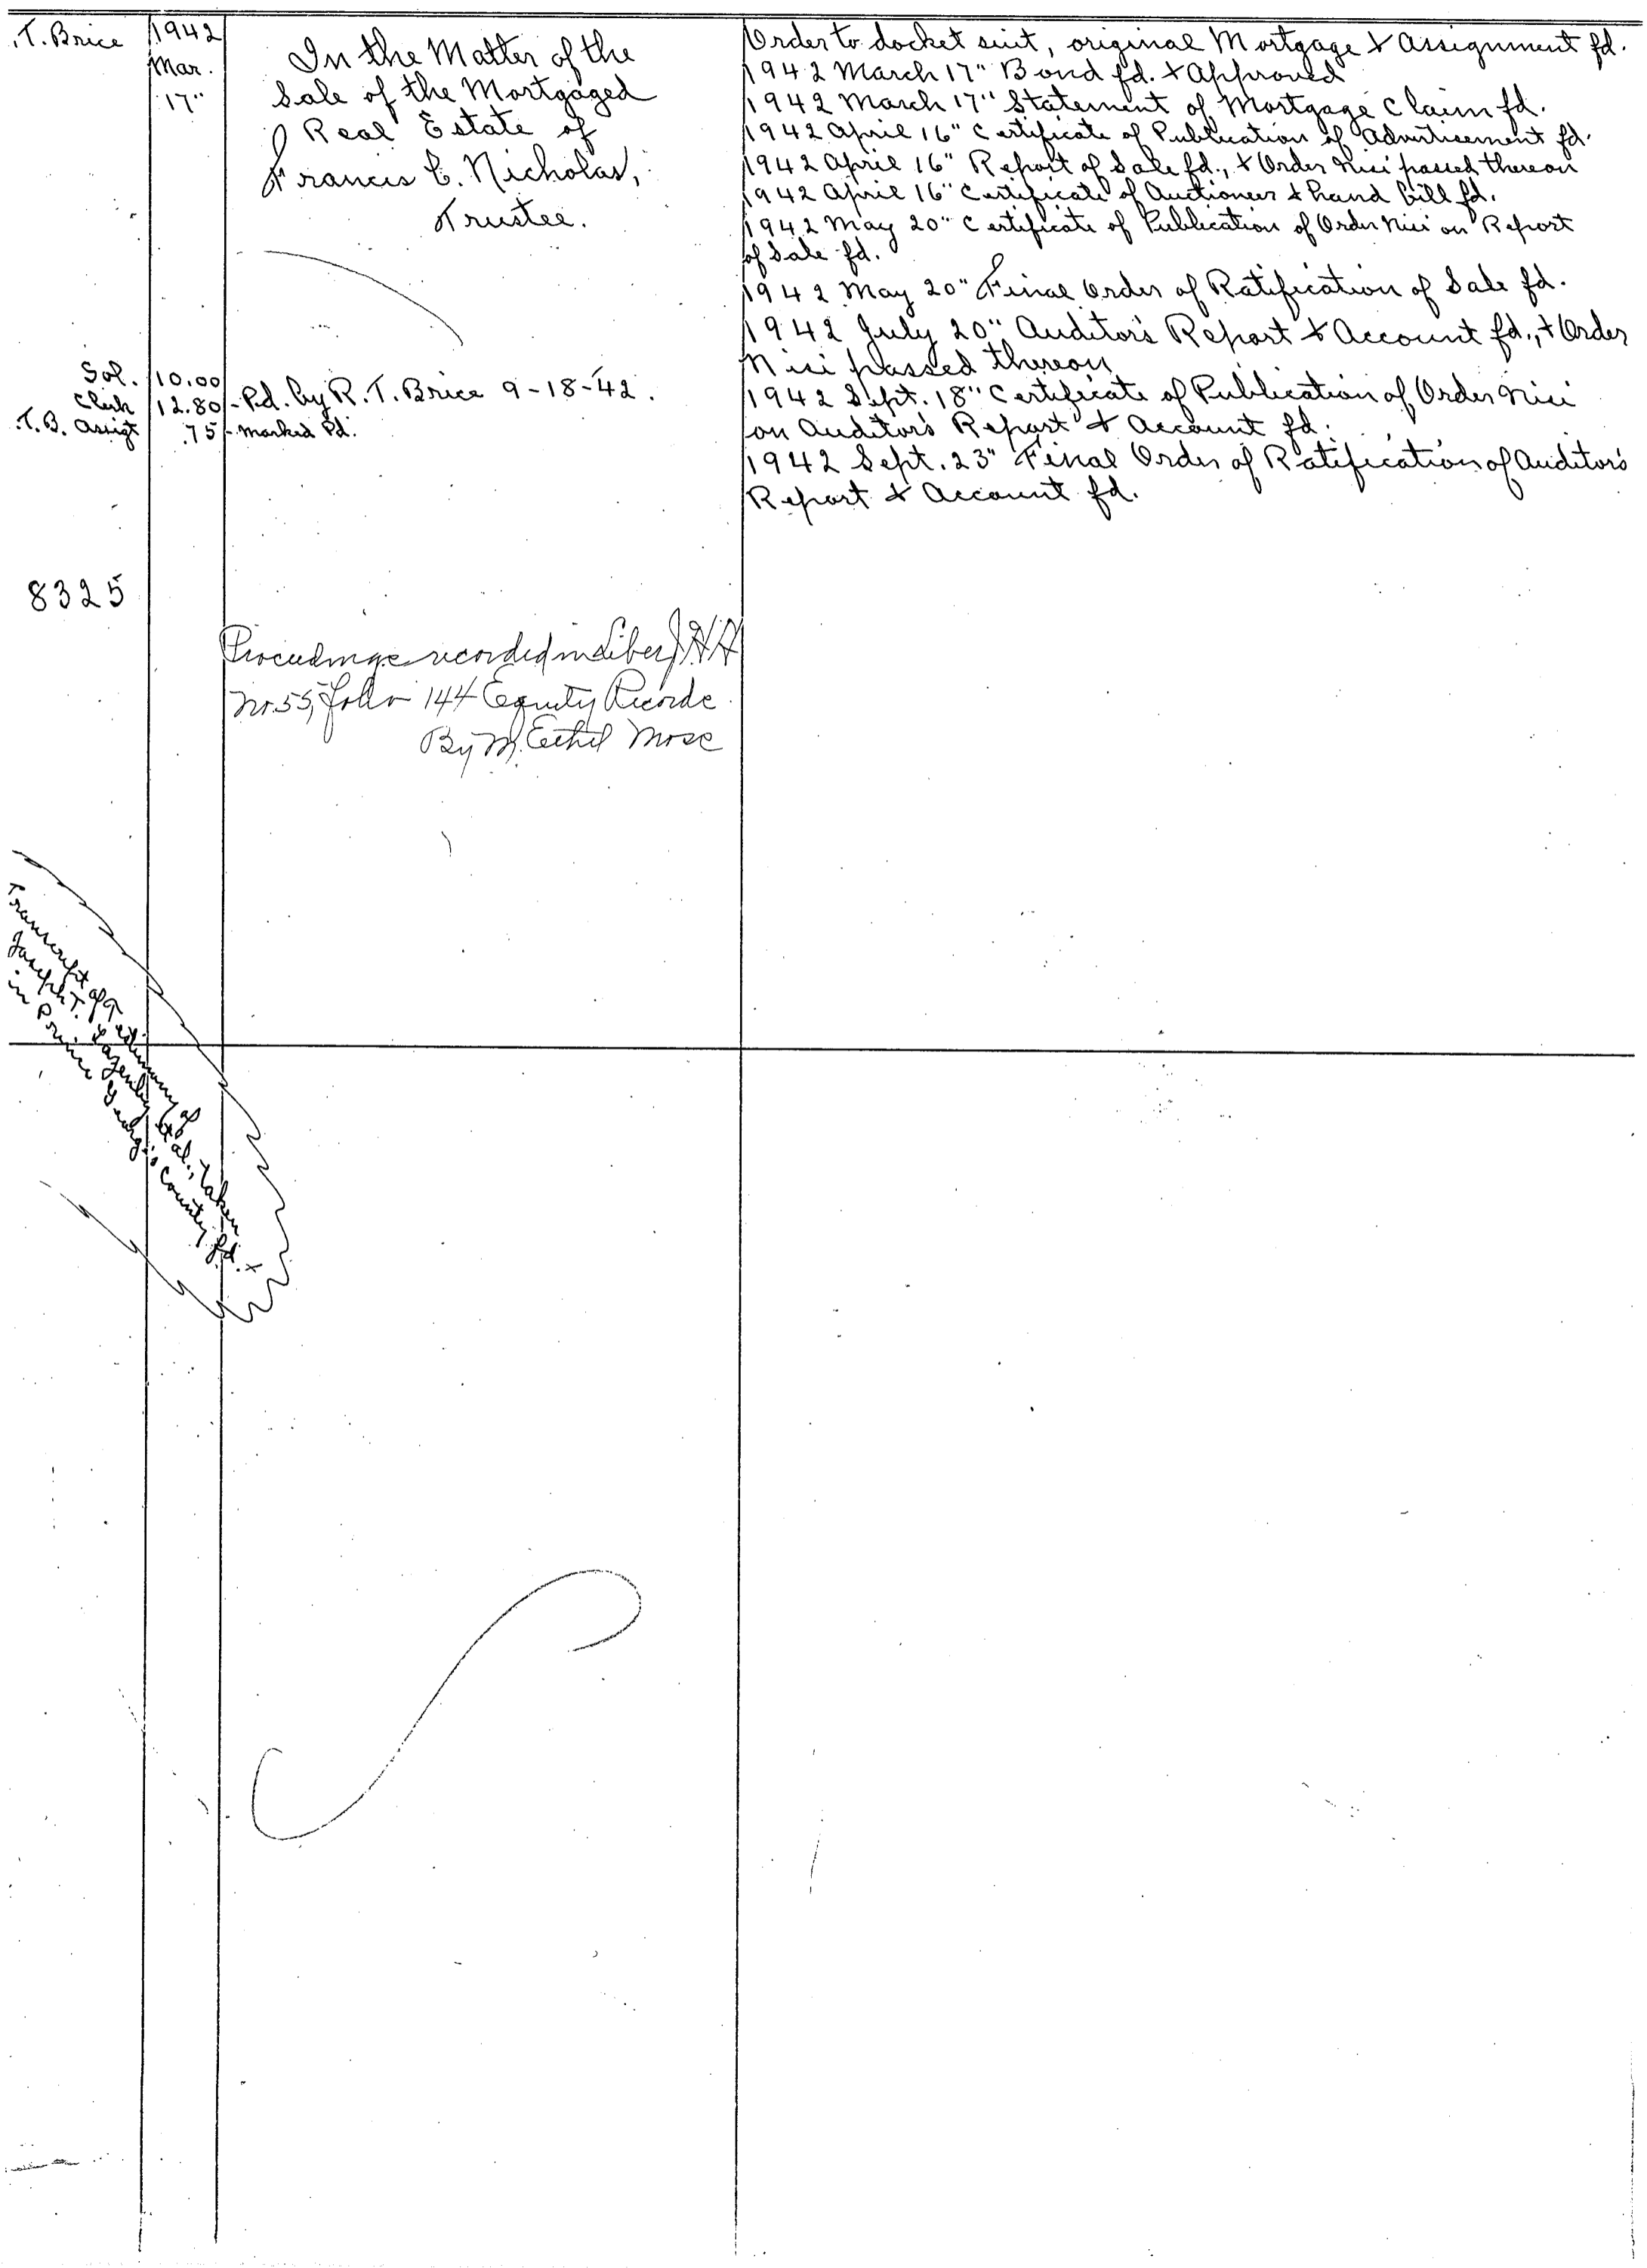 .T. Brice
1942
Mar.
17"
In the Matter of the
Sale of the Mortgaged
Real Estate of
Francis C. Nicholas,
Trustee.
Order to docket suit, original Mortgage & Assignment fd.
1942 March 17" Bond fd. & Approved
1942 March 17" Statement of Mortgage Claim fd.
1942 April 16" Certificate of Publication of Advertisement fd.
1942 April 16" Report of Sale fd., & Order Nisi passed thereon
1942 April 16" Certificate of Auctioneer & hand bill fd.
1942 May 20" Certificate of Publication of Order Nisi on Report
of Sale fd.
1942 May 20" Final Order of Ratification of Sale fd.
1942 July 20" Auditor's Report & Account fd., & Order
Nisi passed thereon
1942 Sept. 18" Certificate of Publication of Order Nisi
on Auditor's Report & Account fd.
1942 Sept. 23" Final Order of Ratification of Auditor's
Report & Account fd.
Sol. 10.00
Clerk 12.80 - Pd. by R. T. Brice 9-18-42.
.T.B. Assigt .75 - Marked Pd.
8325
Proceedings recorded in Liber
No. 55, folio 144 Equity Records
By M. Ethel Mose
Transcript of
in Prince George's County
taken
fd.